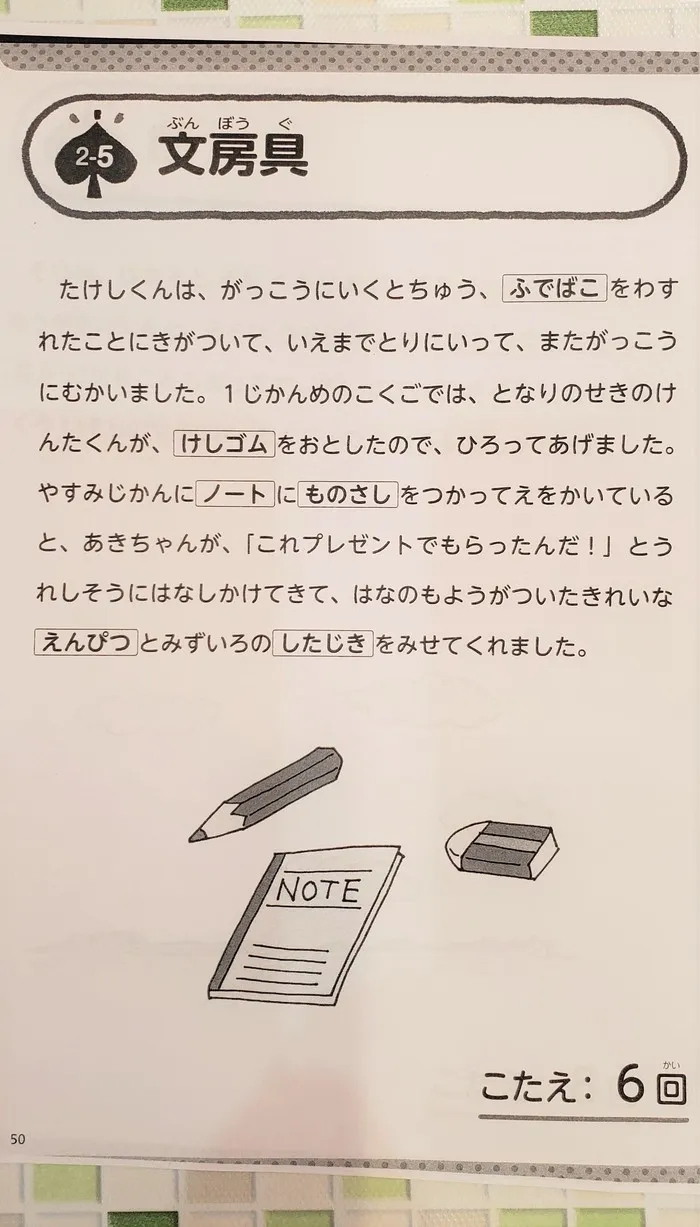 2-5
ぶん ぼう ぐ
文房具
たけしくんは、がっこうにいくとちゅう、ふでばこをわす
れたことにきがついて、いえまでとりにいって、またがっこう
にむかいました。1じかんめのこくごでは、となりのせきのけ
んたくんが、けしゴムをおとしたので、ひろってあげました。
やすみじかんにノートにものさしをつかってえをかいている
と、あきちゃんが、「これプレゼントでもらったんだ！」とう
れしそうにはなしかけてきて、はなのもようがついたきれいな
えんぴつとみずいろのしたじきをみせてくれました。
NOTE
かい
こたえ：6回
50